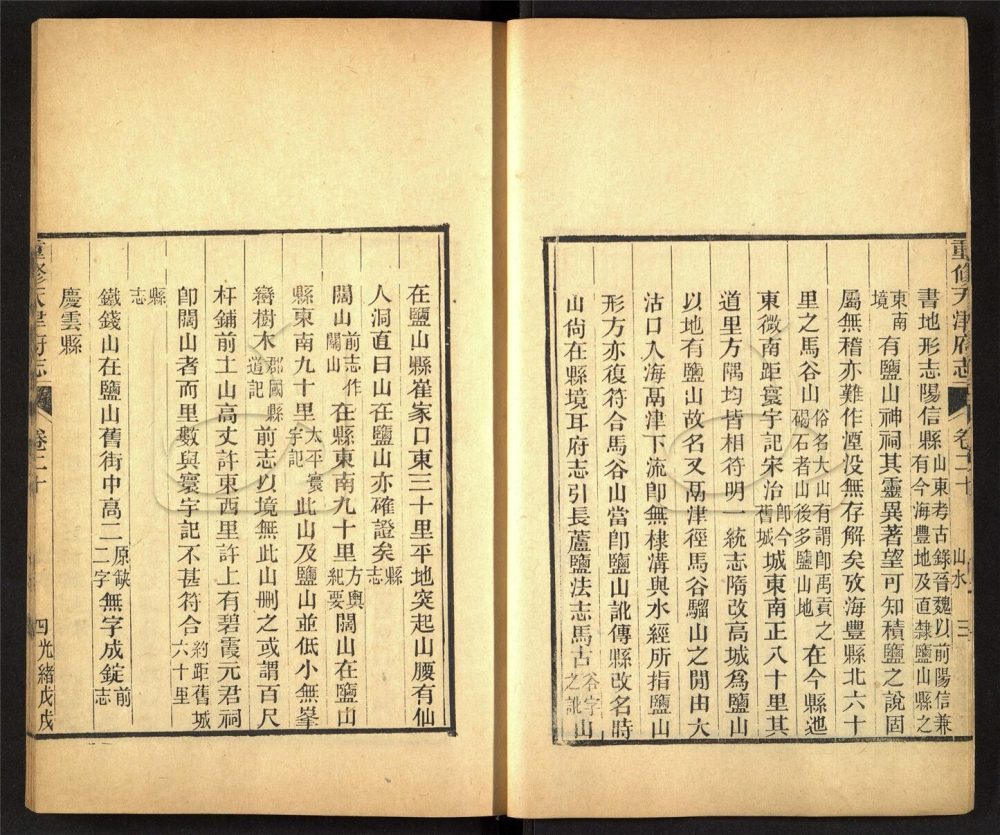 重修天津府志 卷二十 山水 三
書地形志陽信縣山東考古錄晉魏以前陽信兼有今海豐地及直隸鹽山縣之
東南境有鹽山神祠其靈異著望可知積鹽之說固
屬無稽亦難作湮没無存解矣攷海豐縣北六十
里之馬谷山俗名大山有謂卽禹貢之碣石者山後多鹽山地在今縣迆
東微南距寰宇記宋治卽今舊城城東南正八十里其
道里方隅均皆相符明一統志隋改高城爲鹽山
以地有鹽山故名又鬲津徑馬谷騮山之閒由大
沽口入海鬲津下流卽無棣溝與水經所指鹽山
形方亦復符合馬谷山當卽鹽山訛傳縣改名時
山尙在縣境耳府志引長蘆鹽法志馬古谷字之訛山
在鹽山縣崔家口東三十里平地突起山腰有仙
人洞直曰山在鹽山亦確證矣縣志
闊山前志作關山在縣東南九十里方輿紀要闊山在鹽山
縣東南九十里太平寰宇記此山及鹽山並低小無峯
嶺樹木郡國縣道記前志以境無此山删之或謂百尺
杆鋪前土山高丈許東西里許上有碧霞元君祠
卽闊山者而里數與寰宇記不甚符合約距舊城六十里
縣志
鐵錢山在鹽山舊街中高二二原缺二字無字成錠前志
慶雲縣
重修天津府志 卷二十 四 光緒戊戌